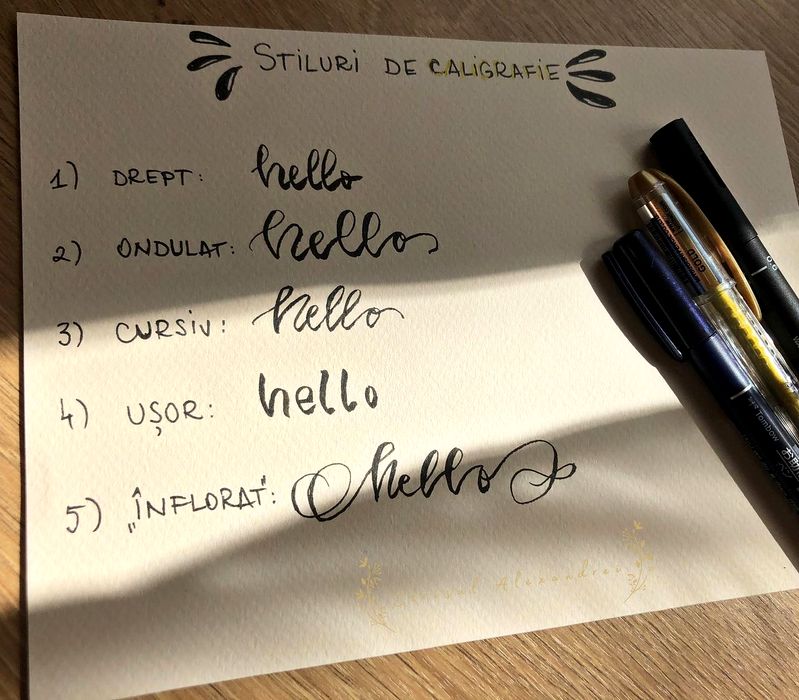 STILURI DE CALIGRAFIE
1) DREPT: hello
2) ONDULAT: hello
3) CURSIV: hello
4) UȘOR: hello
5) „ÎNFLORAT": hello
GOLD
0.8
Tombow